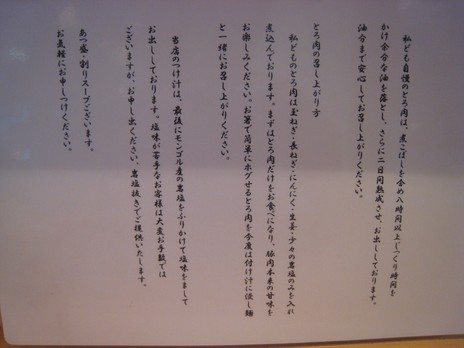 私ども自慢のとろ肉は、煮こぼしを含め八時間以上じっくり時間を
かけ余分な油を落とし、さらに二日間熟成させ、お出ししております。
油分まで安心してお召し上がりください。
とろ肉の召し上がり方
私どものとろ肉は玉ねぎ・長ねぎ・にんにく・生姜・少々の岩塩のみを入れ
煮込んでおります。まずはとろ肉だけをお食べになり、豚肉本来の甘味を
お楽しみください。お箸で簡単にホグせるとろ肉を今度は付け汁に浸し麺
と一緒にお召し上がりください。
当店のつけ汁は、最後にモンゴル産の岩塩をふりかけて塩味をまして
お出ししております。塩味が苦手なお客様は大変お手数では
ございますが、お申し出ください、岩塩抜きでご提供いたします。
あつ盛・割りスープございます。
お気軽にお申しつけください。